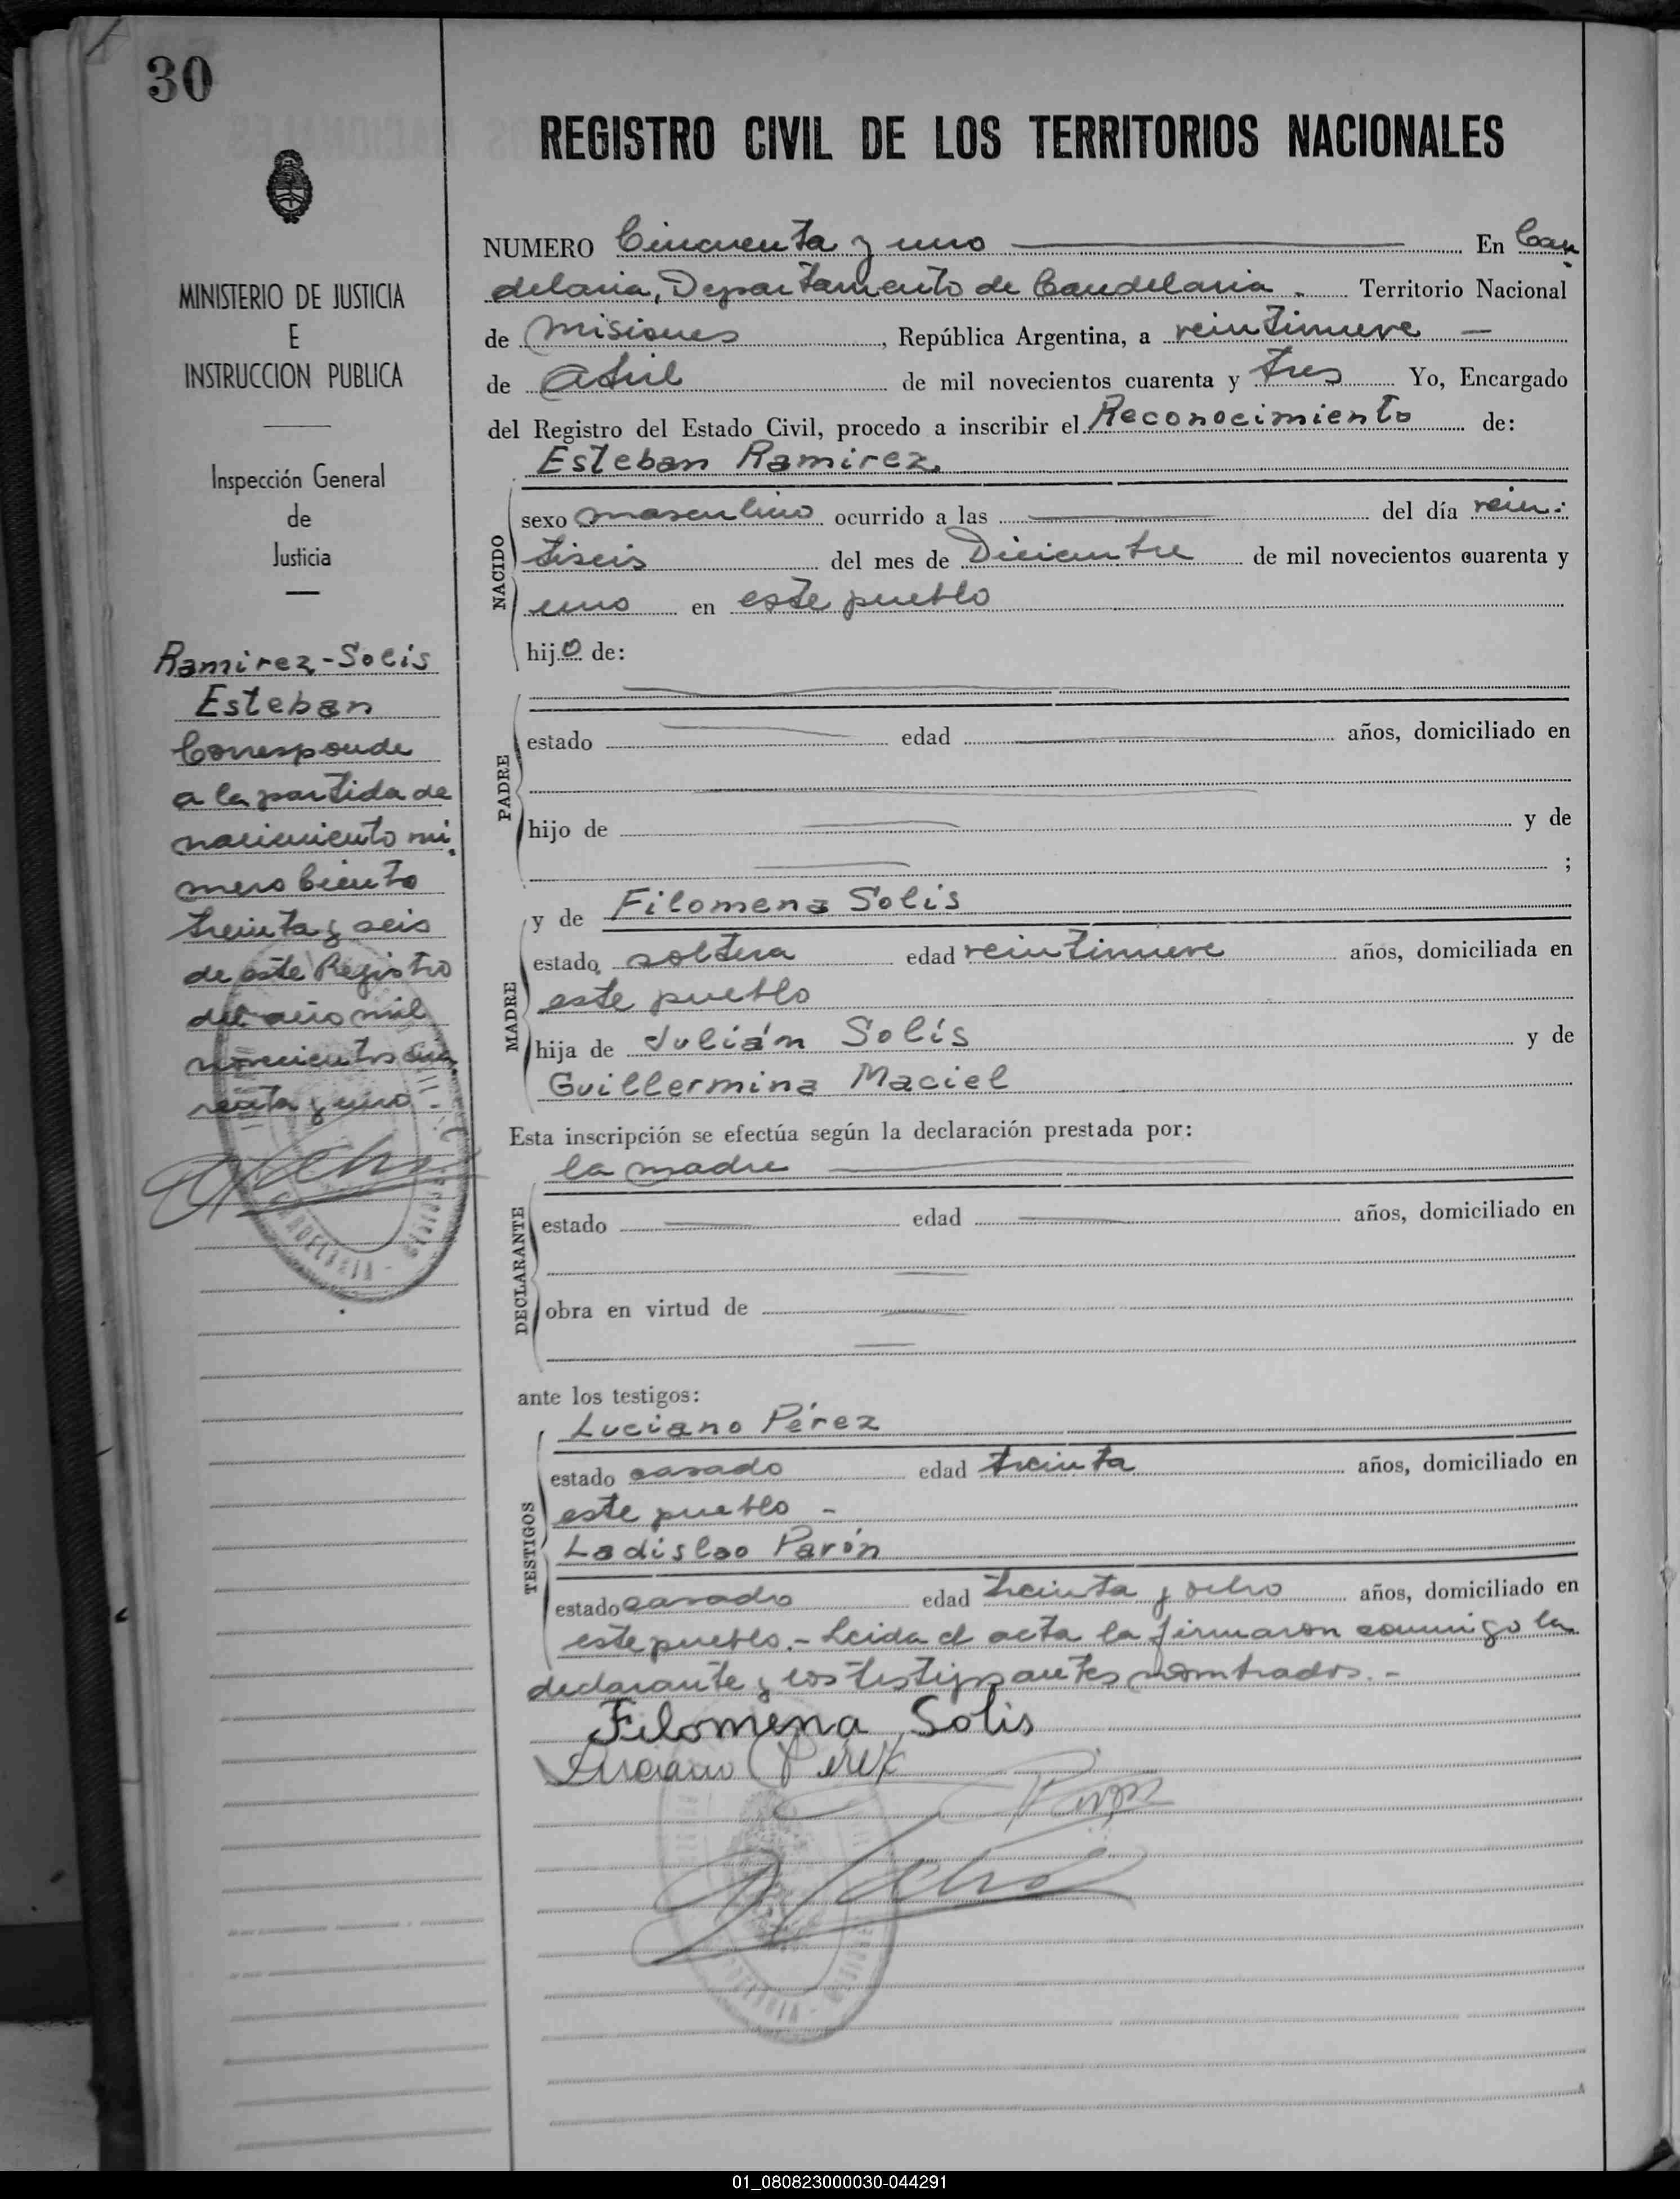 30
REGISTRO CIVIL DE LOS TERRITORIOS NACIONALES
MINISTERIO DE JUSTICIA
E
INSTRUCCION PUBLICA
Inspección General
de
Justicia
Ramirez-Solis
Esteban
Corresponde
a la partida de
nacimiento nú
mero Ciento
treinta y seis
de este Registro
del año mil
novecientos cua
renta y uno.-
NUMERO Cincuenta y uno En Can
delaria, Departamento de Candelaria. Territorio Nacional
de Misiones, República Argentina, a veintinueve
de Abril de mil novecientos cuarenta y tres Yo, Encargado
del Registro del Estado Civil, procedo a inscribir el Reconocimiento de:
Esteban Ramirez.
NACIDO
sexo masculino ocurrido a las del día vein-
tiseis del mes de Diciembre de mil novecientos cuarenta y
uno en este pueblo
hijo de:
PADRE
estado edad años, domiciliado en
hijo de y de
;
MADRE
y de Filomena Solis
estado soltera edad veintinueve años, domiciliada en
este pueblo
hija de Julián Solís y de
Guillermina Maciel
Esta inscripción se efectúa según la declaración prestada por:
la madre
DECLARANTE
estado edad años, domiciliado en
obra en virtud de
ante los testigos:
TESTIGOS
Luciano Pérez
estado casado edad treinta años, domiciliado en
este pueblo -
Ladislao Parón
estado casado edad treinta y ocho años, domiciliado en
este pueblo.- Leida el acta la firmaron conmigo la
declarante y los testigos antes nombrados.-
Filomena Solis
Luciano Pérez
CANDELARIA
01_080823000030-044291